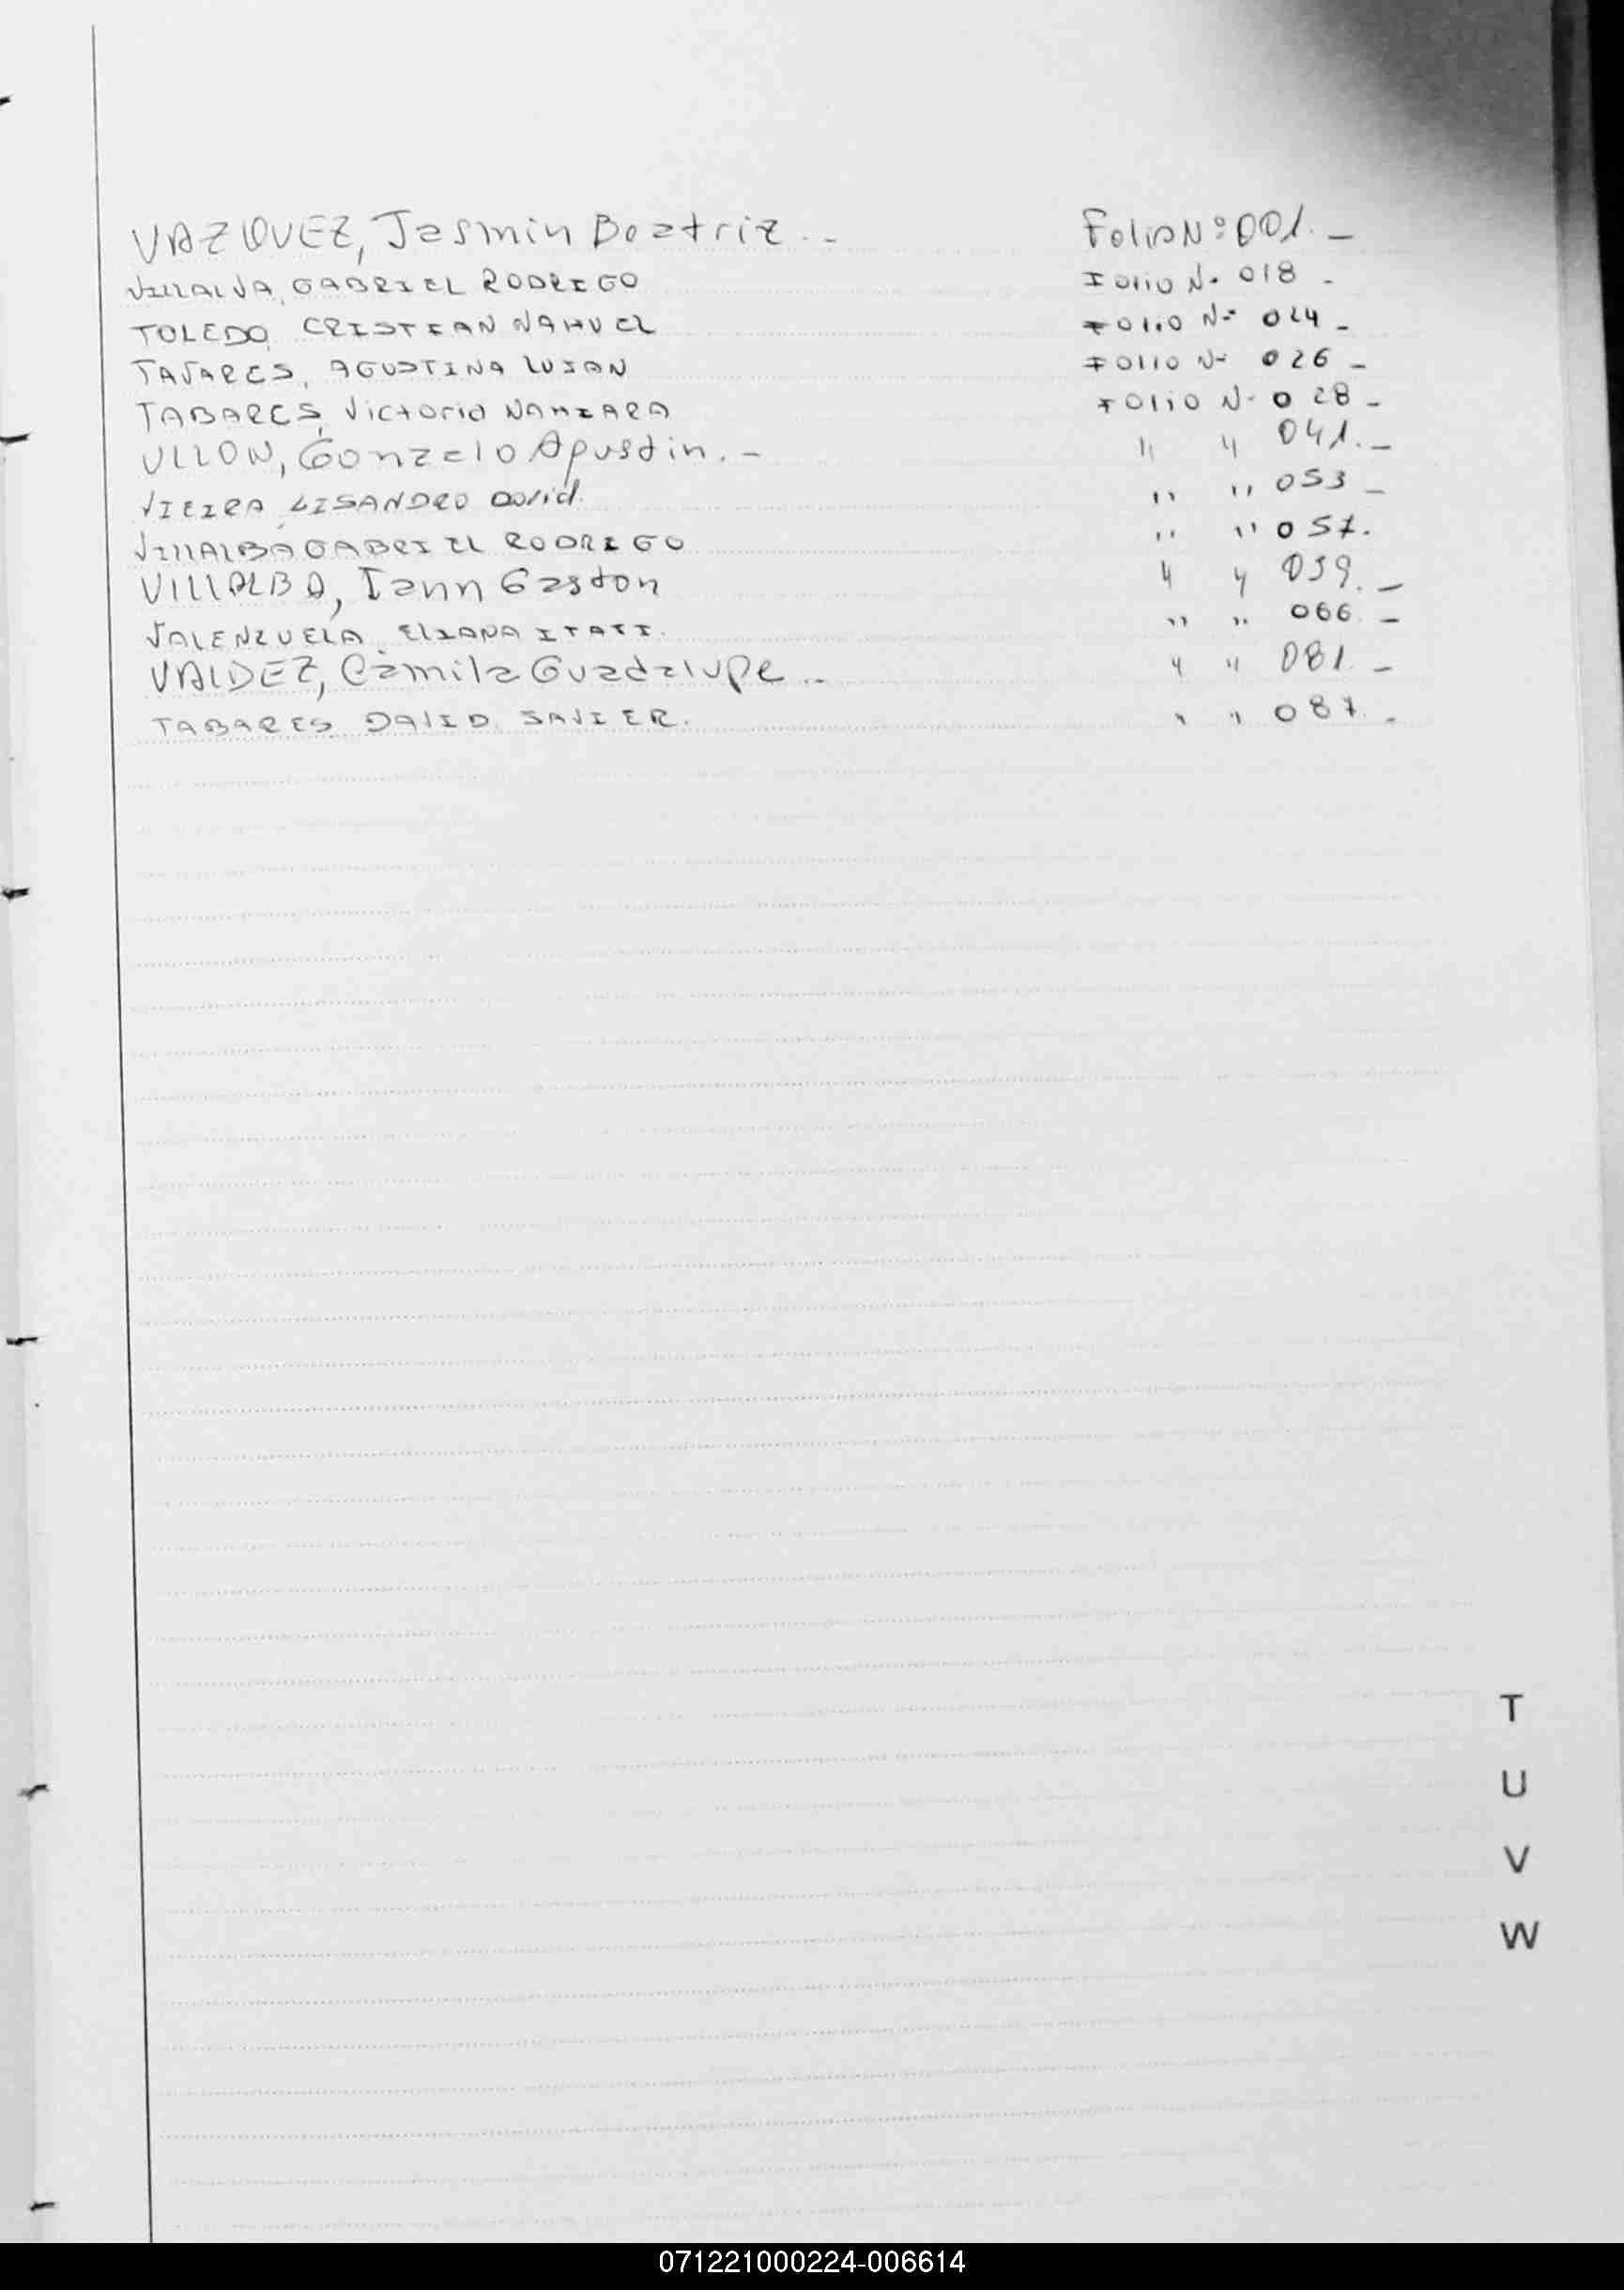 VAZQUEZ, Jasmin Beatriz.- Folio Nº 001.-
VILLALVA, GABRIEL RODRIGO Folio N- 018 -
TOLEDO, CRISTIAN NAHUEL FOLIO N- 024 -
TAVARES, AGUSTINA LUJAN FOLIO N- 026 -
TABARES, Victoria NAHIARA FOLIO N- 028 -
ULLON, Gonzalo Agustin.- " " 041.-
VIEIRA, LISANDRO David. " " 053 -
VILLALBA GABRIEL RODRIGO " " 057.
VILLALBA, Iann Gaston " " 059.-
VALENZUELA, ELIANA ITATI. " " 066 -
VALDEZ, Camila Guadalupe.. " " 081.-
TABARES DAVID JAVIER. " " 087.-
T
U
V
W
071221000224-006614